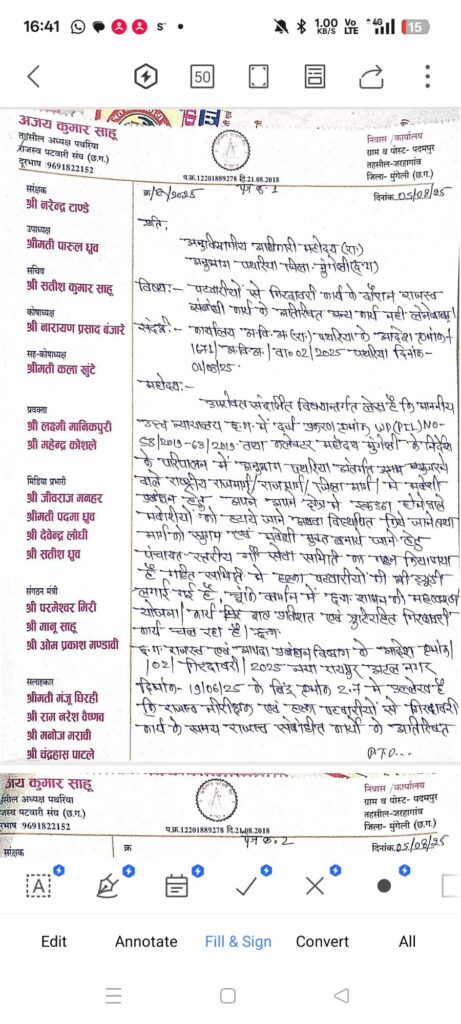 16:41
1.00 KB/S
Vo LTE
4G
15
50
अजय कुमार साहू
तहसील अध्यक्ष पथरिया
राजस्व पटवारी संघ (छ.ग.)
दूरभाष :9691822152
प.क्र.12201889278 दि.21.08.2018
निवास /कार्यालय
ग्राम व पोस्ट- पदमपुर
तहसील-जरहागांव
जिला- मुंगेली (छ.ग.)
पृष्ठ क्र. 1
दिनांक 05/08/25
संरक्षक
श्री नरेन्द्र टाण्डे
उपाध्यक्ष
श्रीमती पारुल ध्रुव
सचिव
श्री सतीश कुमार साहू
कोषाध्यक्ष
श्री नारायण प्रसाद बंजारे
सह-कोषाध्यक्ष
श्रीमती कला खुंटे
प्रवक्ता
श्री लक्ष्मी मानिकपुरी
श्री महेन्द्र कोशले
मिडिया प्रभारी
श्री जीवराज मनहर
श्रीमती पदमा ध्रुव
श्री देवेन्द्र लोधी
श्री सतीश ध्रुव
संगठन मंत्री
श्री परमेश्वर गिरी
श्री मानू साहू
श्री ओम प्रकाश मण्डावी
सलाहकार
श्रीमती मंजू घिरही
श्री राम नरेश वैष्णव
श्री मनोज मरावी
श्री चंद्रहास पाटले
प्रति,
अनुविभागीय अधिकारी महोदय (रा.)
अनुभाग पथरिया जिला मुंगेली (छ.ग)
विषय:- पटवारीयों से गिरदावरी कार्य के दौरान राजस्व
संबंधी कार्य के अतिरिक्त अन्य कार्य नहीं लेने
संदर्भ:- कार्यालय अ.वि.अ.(रा.) पथरिया के आदेश क्रमांक
1671/अ.वि.अ./वा.02/2025 पथरिया दिनांक-
01/08/25.
महोदय:-
उपरोक्त संदर्भित विषयान्तर्गत लेख है कि माननीय
उच्च न्यायालय छ.ग. में दर्ज प्रकरण क्रमांक WP(PIL) NO-
58/2019-63/2019 तथा कलेक्टर महोदय मुंगेली के निर्देश
के परिपालन में अनुभाग पथरिया अंतर्गत गुजरने
वाले राष्ट्रीय राजमार्ग/राजमार्ग/जिला मार्ग/ में मवेशी
प्रबंधन हेतु अपने अपने क्षेत्र में इकट्ठा होने वाले
मवेशीयों को हटाये जाने अथवा विस्थापित किये जाने तथा
मार्ग को सुगम एवं मवेशी मुक्त बनाये जाने हेतु
पंचायत स्तरीय गौ सेवा समिति का गठन किया गया
है गठित समिति में हल्का पटवारीयों की भी ड्यूटी
लगाई गई है, चूंकि वर्तमान में छ.ग. शासन की
योजना/कार्य शत प्रतिशत एवं त्रुटिरहित गिरदावरी
कार्य चल रहा है।
छ.ग. राजस्व एवं आपदा प्रबंधन विभाग के आदेश क्रमांक
/02/ गिरदावरी/2025 नवा रायपुर अटल नगर
दिनांक- 19/06/25 के बिंदु क्रमांक 2.7 में उल्लेख है
कि राजस्व निरीक्षक एवं हल्का पटवारीयों से गिरदावरी
कार्य के समय राजस्व संबंधित कार्यो के अतिरिक्त
P.T.O...
जय कुमार साहू
सील अध्यक्ष पथरिया
जस्व पटवारी संघ (छ.ग.)
रभाष :9691822152
प.क्र.12201889278 दि.21.08.2018
निवास /कार्यालय
ग्राम व पोस्ट- पदमपुर
तहसील-जरहागांव
जिला- मुंगेली (छ.ग.)
संरक्षक
क्र
पृष्ठ क्र. 2
दिनांक 05/08/25
Edit
Annotate
Fill & Sign
Convert
All